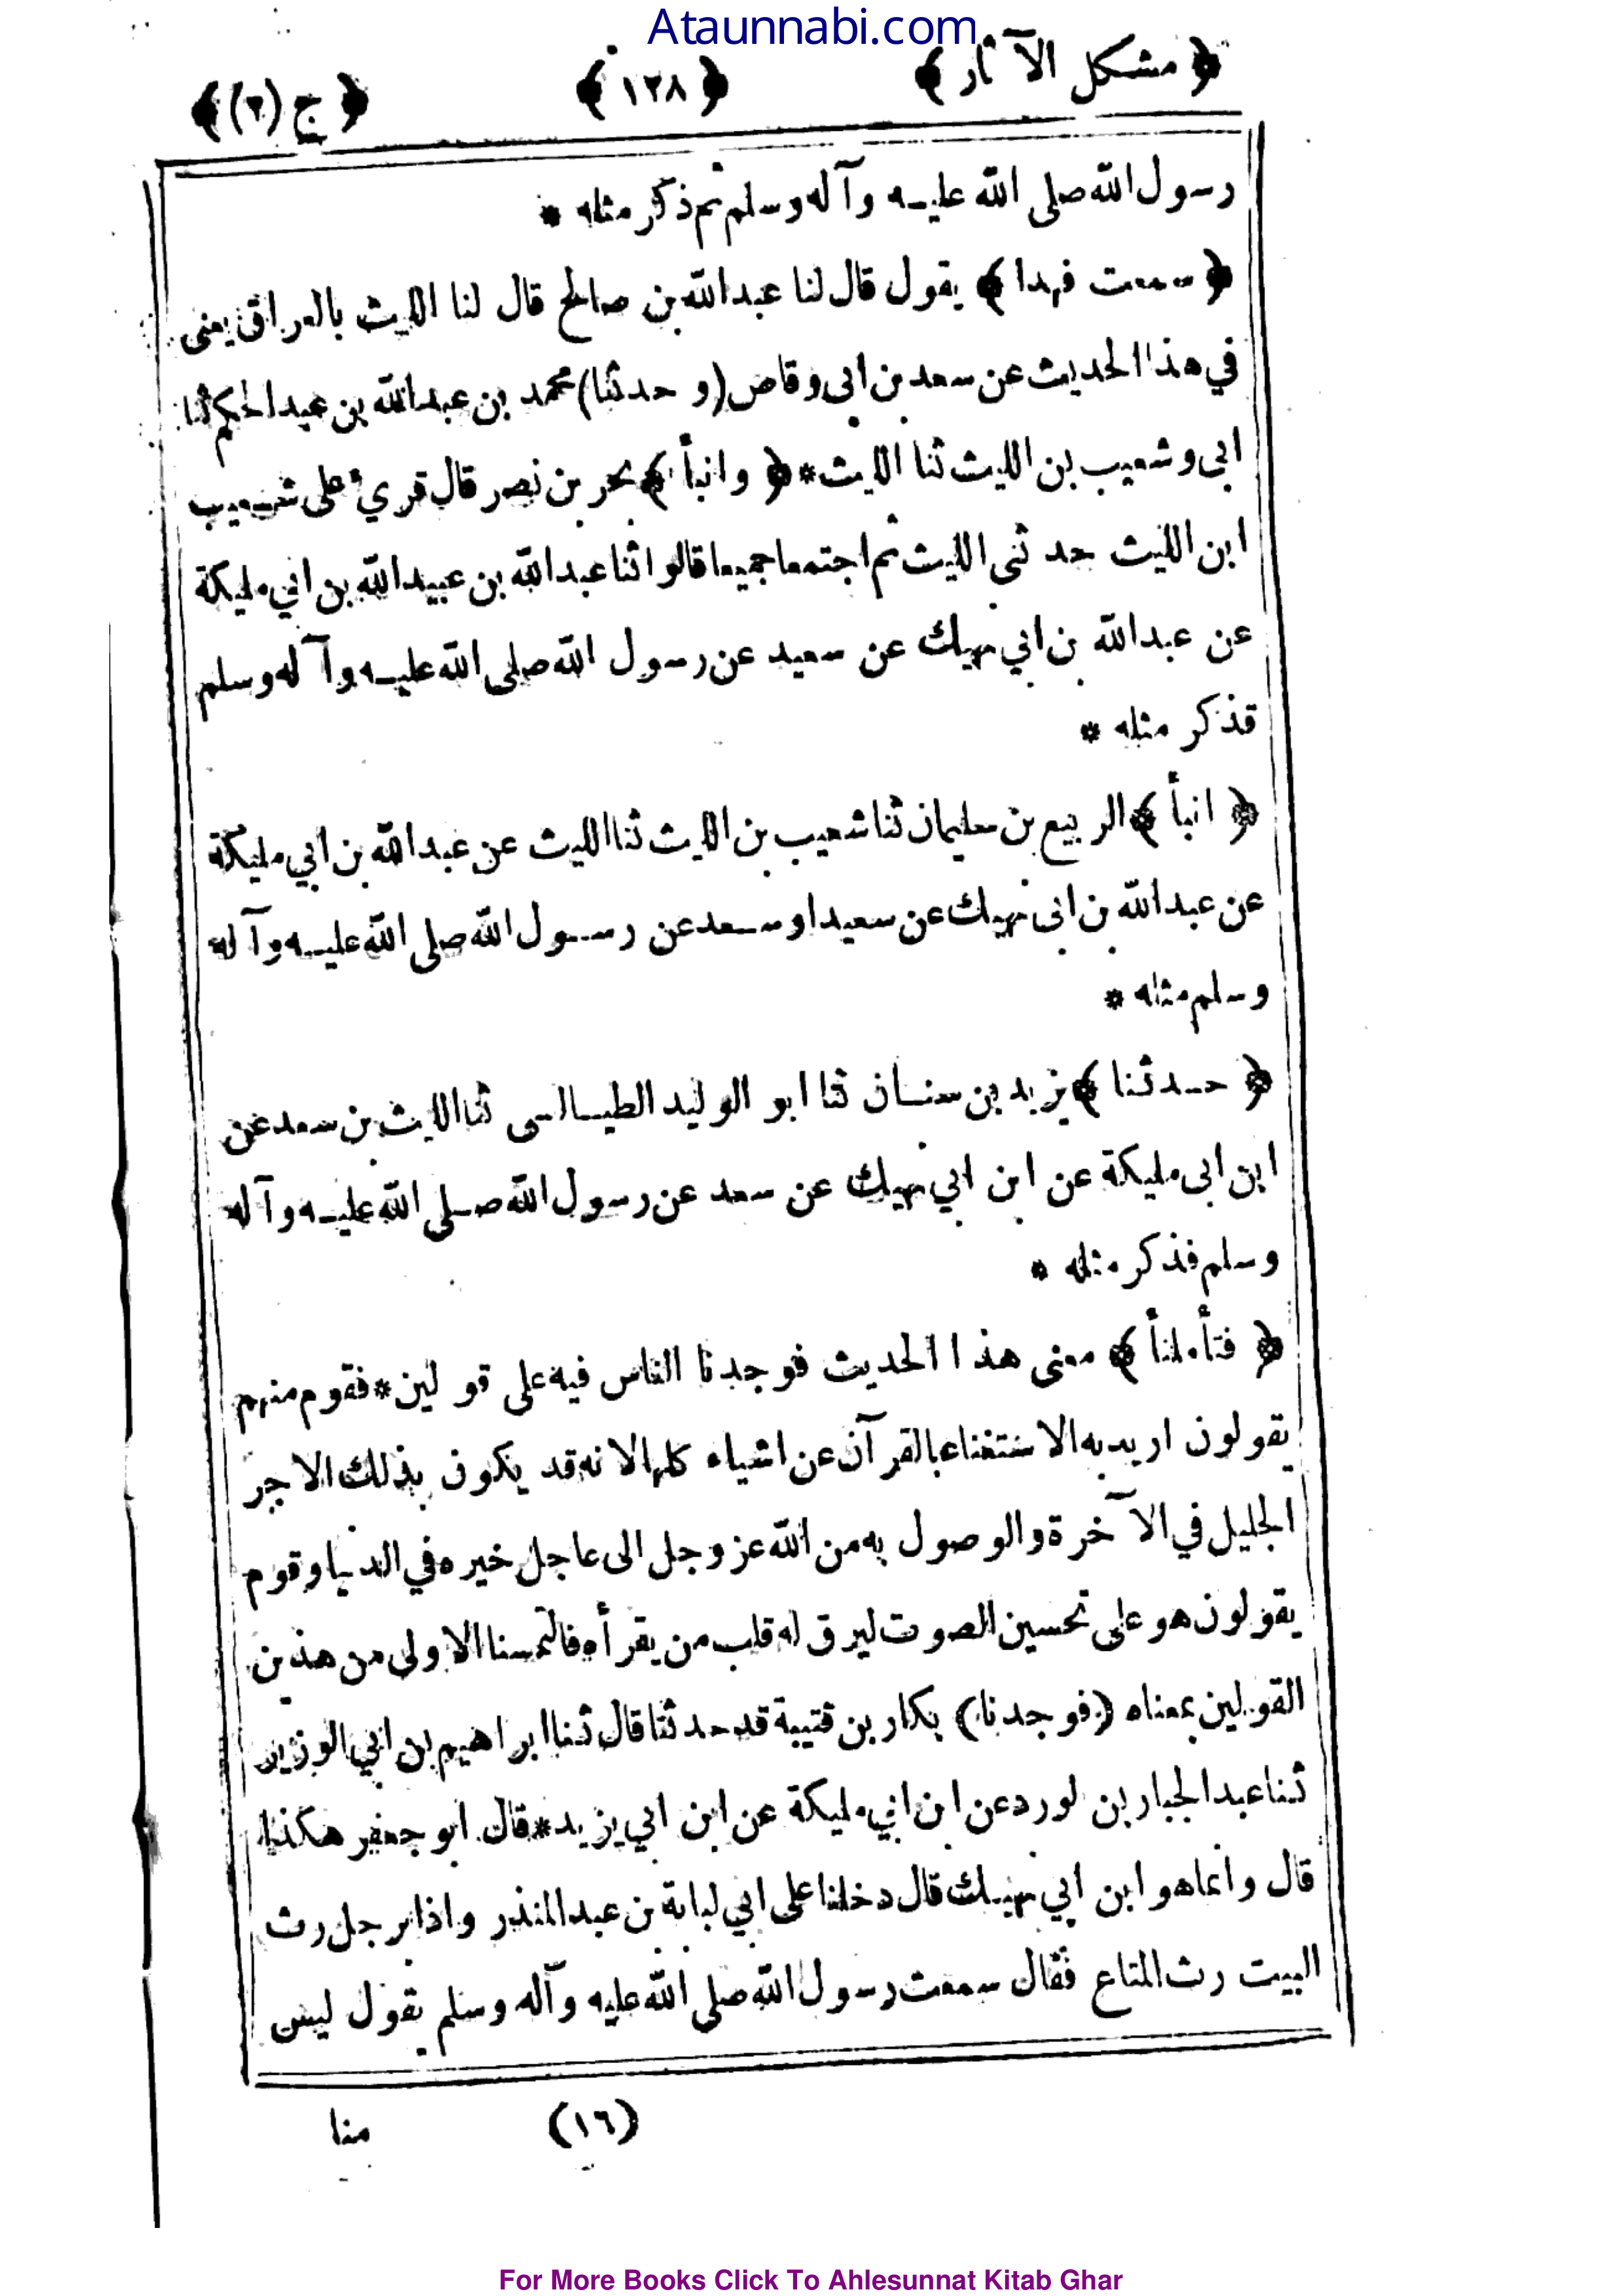 Ataunnabi.com
﴿ مشكل الآثار ﴾ ﴿ ١٢٨ ﴾ ﴿ ج (٢) ﴾
رسول الله صلى الله عليه وآله وسلم ثم ذكر مثله *
﴿ سمعت فهدا ﴾ يقول قال لنا عبد الله بن صالح قال لنا الليث بالعراق يعنى
في هذا الحديث عن سعد بن ابى وقاص (و حدثنا) محمد بن عبد الله بن عبد الحكم ثنا
ابى وشعيب بن الليث ثنا الليث * ﴿ وانبأ ﴾ بحر بن نصر قال قرئ على شعيب
ابن الليث حدثنى الليث ثم اجتمعا جميعا قالوا ثنا عبد الله بن عبيد الله بن ابي مليكة
عن عبد الله بن ابي نهيك عن سعيد عن رسول الله صلى الله عليه وآله وسلم
فذكر مثله *
﴿ انبأ ﴾ الربيع بن سليمان ثنا شعيب بن الليث ثنا الليث عن عبد الله بن ابي مليكة
عن عبد الله بن ابى نهيك عن سعيد او سعد عن رسول الله صلى الله عليه وآله
وسلم مثله *
﴿ حدثنا ﴾ يزيد بن سنان ثنا ابو الوليد الطيالسى ثنا الليث بن سعد عن
ابن ابى مليكة عن ابن ابي نهيك عن سعد عن رسول الله صلى الله عليه وآله
وسلم فذكر مثله *
﴿ فتأملنأ ﴾ معنى هذا الحديث فوجدنا الناس فيه على قولين * فقوم منهم
يقولون اريد به الاستغناء بالقرآن عن اشياء كلها لانه قد يكون بذلك الاجر
الجليل في الآخرة والوصول به من الله عز وجل الى عاجل خيره في الدنيا وقوم
يقولون هو على تحسين الصوت ليرق له قلب من يقرأه فالتمسنا الاولى من هذين
القولين بمعناه (فوجدنا) بكار بن قتيبة قد حدثنا قال ثنا ابراهيم بن ابي الوزير
ثنا عبد الجبار بن لورد عن ابن ابي مليكة عن ابن ابي يزيد * قال ابو جعفر هكذا
قال وانما هو ابن ابي نهيك قال دخلنا على ابي لبابة بن عبد المنذر واذا برجل رث
البيت رث المتاع فقال سمعت رسول الله صلى الله عليه وآله وسلم يقول ليس
(١٦) منا
For More Books Click To Ahlesunnat Kitab Ghar